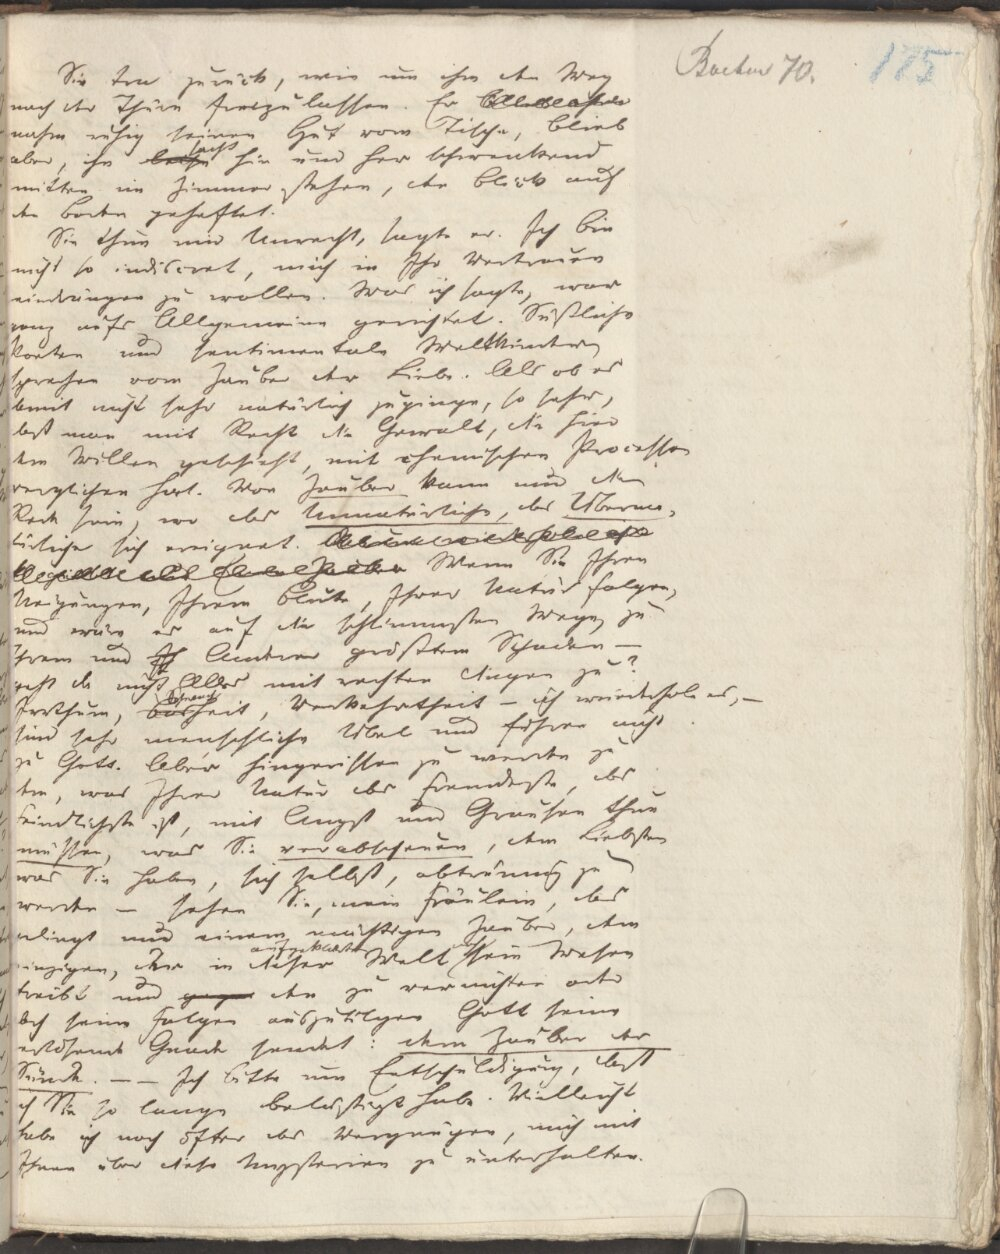 Bocten 70.
175
Sie trat zurück, wie um ihm den Weg
nach der Thüre freizulassen. Er
nahm ruhig seinen Hut vom Tische, blieb
aber, ihn sacht hin und her schwenkend
mitten im Zimmer stehen, den Blick auf
den Boden geheftet.
Sie thun mir Unrecht, sagte er. Ich bin
nicht so indiscret, mich in Ihr Vertrauen
eindrängen zu wollen. Was ich sagte, war
ganz aufs Allgemeine gerichtet. Süßliche
Poeten und sentimentale Weltkinder
sprechen vom Zauber der Liebe. Als ob es
damit nicht sehr natürlich zuginge, so sehr,
daß man mit Recht die Gewalt, die hier
dem Willen geschieht, mit chemischen Processen
verglichen hat. Von Zauber kann nur die
Rede sein, wo das Unnatürliche, das Überna-
türliche sich ereignet.
Wenn Sie Ihren
Neigungen, Ihrem Blute, Ihrer Natur folgen,
und wäre es auf die schlimmsten Wege, zu
Ihrem und Anderer größtem Schaden –
geht da nicht Alles mit rechten Dingen zu?
Irrthum, Verkehrtheit – ich wiederhole es, –
sind sehr menschliche Übel und führen nicht
zu Gott. Aber hingerissen zu werden zu
dem, was Ihrer Natur das Fremdeste, das
Feindlichste ist, mit Angst und Grausen thun
müssen, was Sie verabscheuen, dem Liebsten
was Sie haben, sich selbst, abtrünnig zu
werden – sehen Sie, mein Fräulein, das
gelingt nur einem mächtigen Zauber, dem
einzigen, der in dieser aufgeklärten Welt sein Wesen
treibt und den zu vernichten oder
doch seine Folgen auszutilgen Gott seine
erlösende Gnade sendet: dem Zauber der
Sünde. – – Ich bitte um Entschuldigung, daß
ich Sie so lange belästigt habe. Vielleicht
habe ich noch öfter das Vergnügen, mich mit
Ihnen über diese Mysterien zu unterhalten.